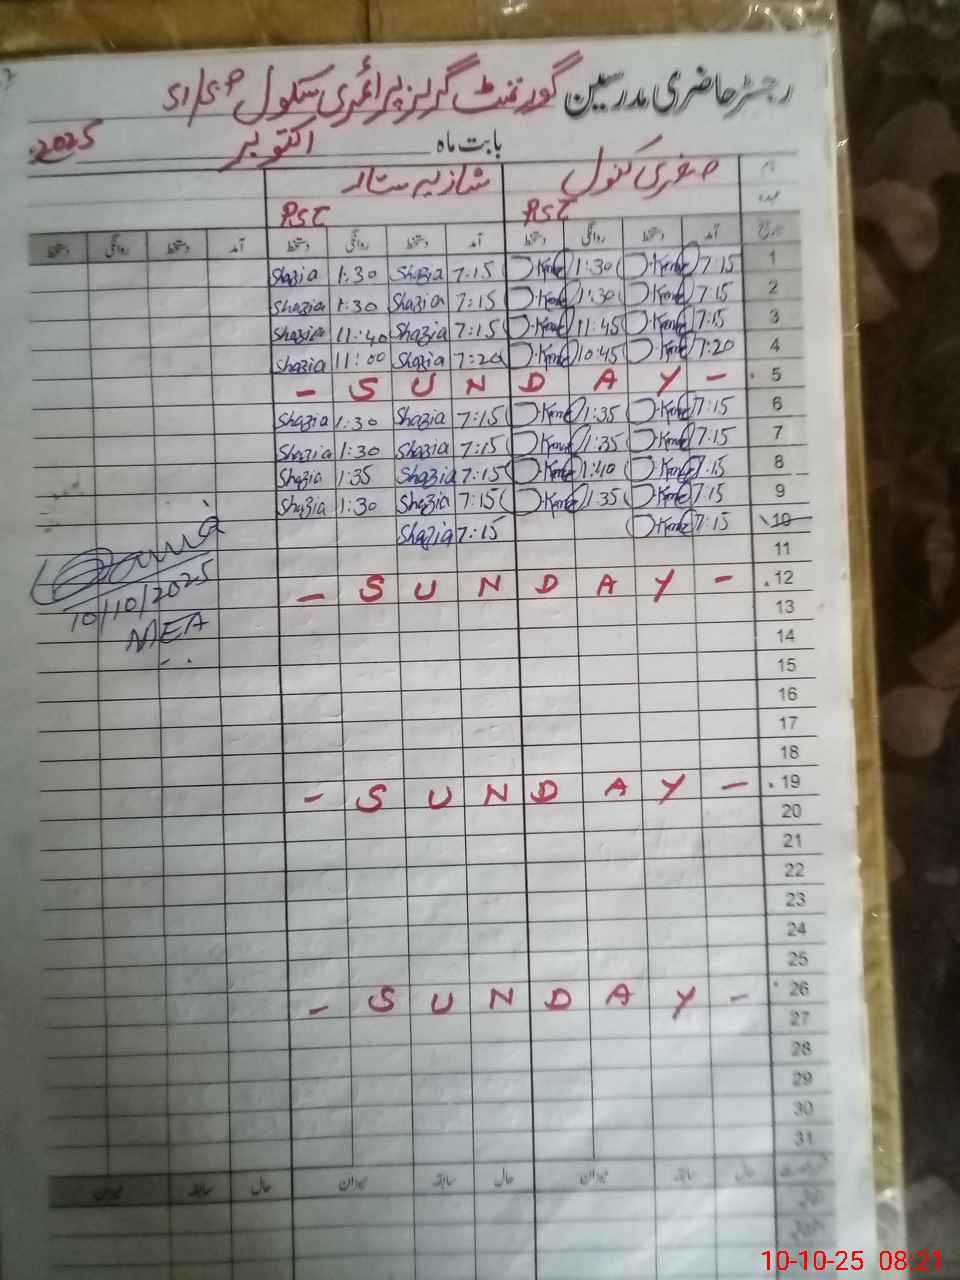 رجسٹر حاضری مدرسین گورنمنٹ گرلز پرائمری سکول 51/SP
بابت ماہ اکتوبر 2025
نام صغری کنول شازیہ ستار
عہدہ PST PST
تاریخ آمد دستخط روانگی دستخط آمد دستخط روانگی دستخط آمد دستخط روانگی دستخط
1 7:15 1:30 7:15 Shazia 1:30 Shazia
2 7:15 1:30 7:15 Shazia 1:30 Shazia
3 7:15 11:45 7:15 Shazia 11:40 Shazia
4 7:20 10:45 7:20 Shazia 11:00 Shazia
5 - S U N D A Y -
6 7:15 1:35 7:15 Shazia 1:30 Shazia
7 7:15 1:35 7:15 Shazia 1:30 Shazia
8 7:15 1:40 7:15 Shazia 1:35 Shazia
9 7:15 1:35 7:15 Shazia 1:30 Shazia
10 7:15 7:15 Shazia
11
12 - S U N D A Y -
10/10/2025
MEA
13
14
15
16
17
18
19 - S U N D A Y -
20
21
22
23
24
25
26 - S U N D A Y -
27
28
29
30
31
حال سابقہ میزان حال سابقہ میزان حال سابقہ میزان
10-10-25 08:21